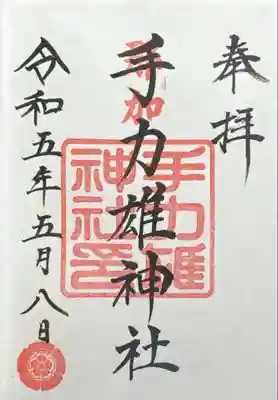 奉拝
手力雄神社
那加
手力雄
神社印
令和五年五月八日